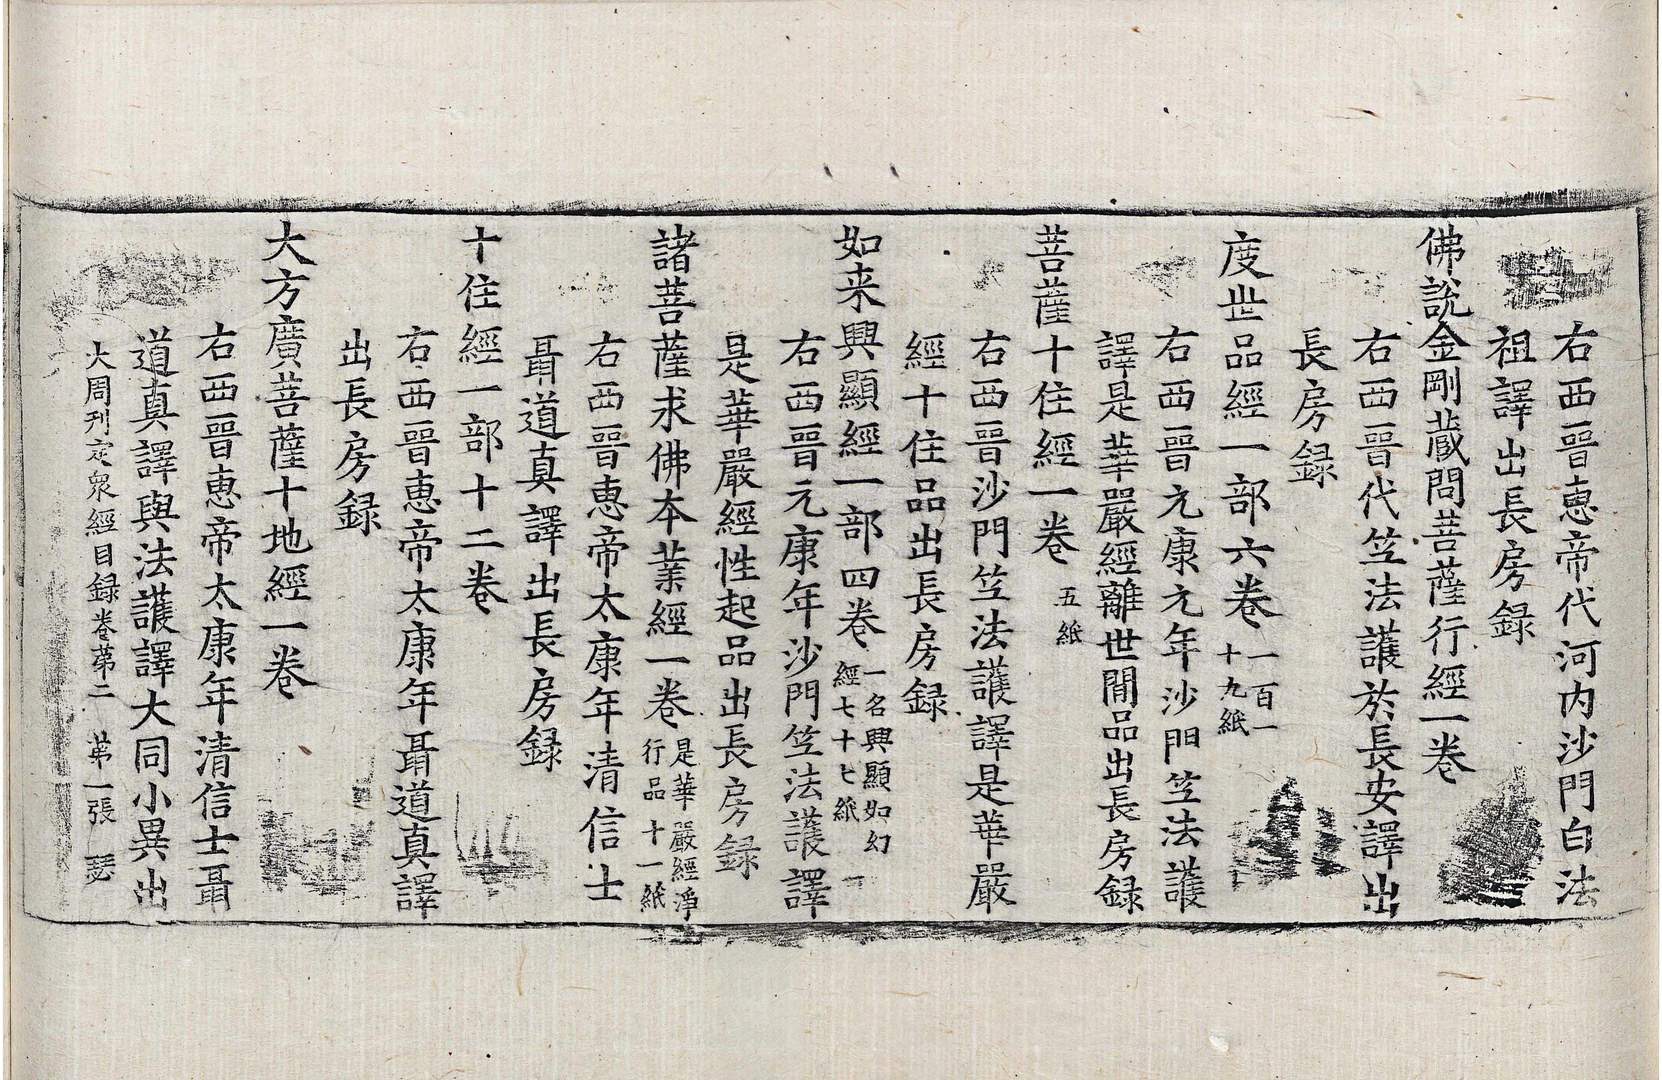 右西晉惠帝代河内沙門白法
祖譯出長房録
佛説金剛藏問菩薩行經一卷
右西晉代竺法護於長安譯出
長房録
度世品經一部六卷 一百一
十九紙
右西晉元康元年沙門竺法護
譯是華嚴經離世間品出長房録
菩薩十住經一卷 五紙
右西晉沙門竺法護譯是華嚴
經十住品出長房録
如来興顯經一部四卷 一名興顯如幻
經七十七紙
右西晉元康年沙門竺法護譯
是華嚴經性起品出長房録
諸菩薩求佛本業經一卷 是華嚴經淨
行品十一紙
右西晉惠帝太康年清信士
聶道真譯出長房録
十住經一部十二卷
右西晉惠帝太康年聶道真譯
出長房録
大方廣菩薩十地經一卷
右西晉惠帝太康年清信士聶
道真譯與法護譯大同小異出
大周刊定衆經目録卷苐二 苐一張 瑟